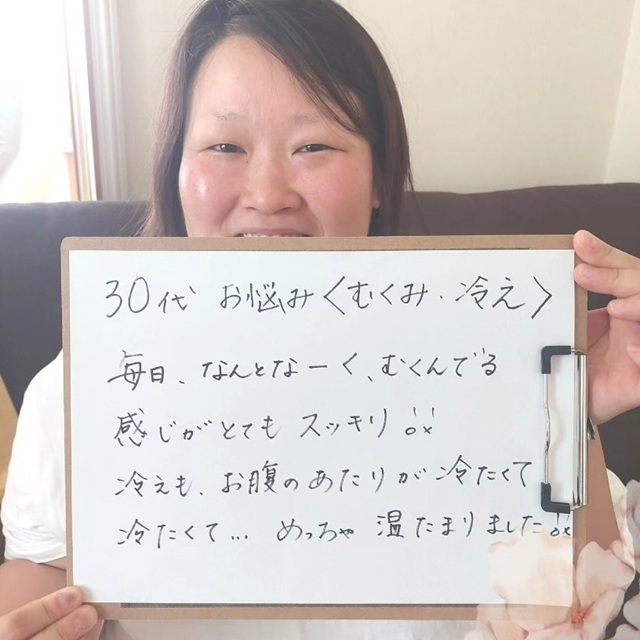 30代 お悩み〈むくみ・冷え〉
毎日、なんとなーく、むくんでる
感じがとても スッキリ!!
冷えも、お腹のあたりが冷たくて
冷たくて… めっちゃ 温たまりました!!